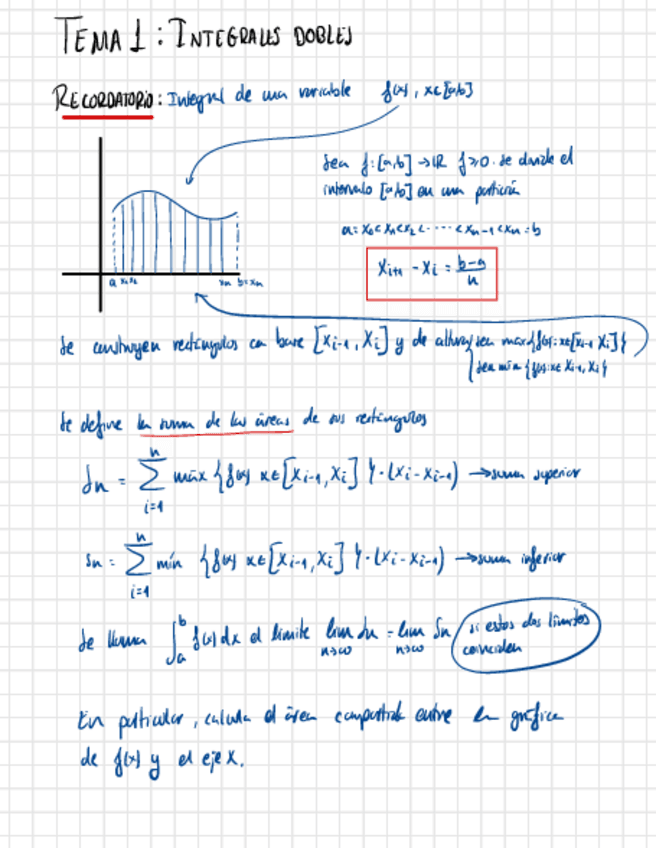 TEMA 1: INTEGRALES DOBLES
RECORDATORIO: Integral de una variable f(x), x∈[a,b]
Sea f: [a,b] → IR f≥0. Se divide el
intervalo [a,b] en una partición
a = x₀ < x₁ < x₂ < ····· < xₙ₋₁ < xₙ = b
xᵢ₊₁ - xᵢ = (b-a)/n
a x₁ x₂ xₙ b=xₙ
Se construyen rectángulos con base [xᵢ₋₁, xᵢ] y de altura { sea max{f(x): x∈[xᵢ₋₁, xᵢ]}
{ sea min {f(x): x∈ xᵢ₋₁, xᵢ}
Se define la suma de las áreas de sus rectángulos
Sₙ = ∑ᵢ₌₁ⁿ máx {f(x) x∈[xᵢ₋₁, xᵢ]}·(xᵢ - xᵢ₋₁) → suma superior
sₙ = ∑ᵢ₌₁ⁿ mín {f(x) x∈[xᵢ₋₁, xᵢ]}·(xᵢ - xᵢ₋₁) → suma inferior
Se llama ∫ₐᵇ f(x) dx al límite lim n→∞ sₙ = lim n→∞ Sₙ si estos dos límites
coinciden
En particular, calcula el área entre la gráfica
de f(x) y el eje X.